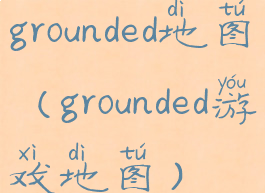 dì tú
grounded地图
yóu
（grounded游
xì dì tú
戏地图）